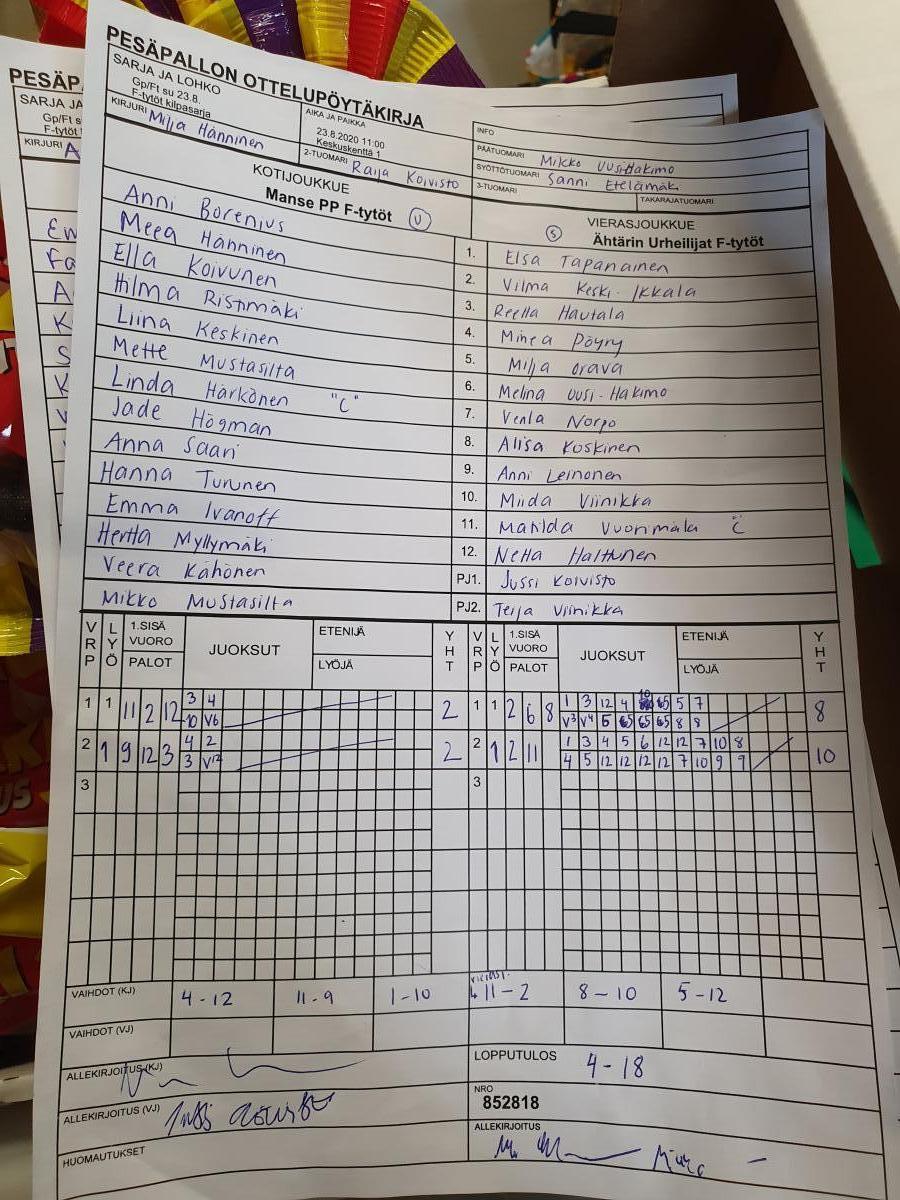 PESÄP
SARJA JA
Gp/Ft su
F-tytöt
KIRJURI A
PESÄPALLON OTTELUPÖYTÄKIRJA
SARJA JA LOHKO
Gp/Ft su 23.8.
F-tytöt kilpasarja
KIRJURI Milja Hänninen
AIKA JA PAIKKA
23.8.2020 11:00
Keskuskenttä 1
2-TUOMARI Raija Koivisto
INFO
PÄÄTUOMARI Mikko Uusi-Hakimo
SYÖTTÖTUOMARI Sanni Etelämäki
3-TUOMARI
TAKARAJATUOMARI
KOTIJOUKKUE
Manse PP F-tytöt U
VIERASJOUKKUE
S Ähtärin Urheilijat F-tytöt
Anni Borenius 1. Elsa Tapanainen
Meea Hänninen 2. Vilma Keski-Ikkala
Ella Koivunen 3. Reetta Hautala
Hilma Ristimäki 4. Minea Pöyry
Liina Keskinen 5. Milja Orava
Mette Mustasilta 6. Melina Uusi-Hakimo
Linda Härkönen "C" 7. Venla Norpo
Jade Högman 8. Alisa Koskinen
Anna Saari 9. Anni Leinonen
Hanna Turunen 10. Miida Viinikka
Emma Ivanoff 11. Matilda Vuorimala C
Hertta Myllymäki 12. Netta Halttunen
Veera Kähönen PJ1. Jussi Koivisto
Mikko Mustasilta PJ2. Teija Viinikka
VRP LYÖ 1.SISÄ VUORO PALOT JUOKSUT ETENIJÄ LYÖJÄ YHT VRP LYÖ 1.SISÄ VUORO PALOT JUOKSUT ETENIJÄ LYÖJÄ YHT
1 1 11 2 12 3 4 2 1 1 2 6 8 1 3 12 4 5 7 8
10 V6 V3 V4 5 8 8
2 1 9 12 3 4 2 2 2 1 2 11 1 3 4 5 6 12 12 7 10 8 10
3 V12 4 5 12 12 12 12 7 10 9 9
3 3
VAIHDOT (KJ) 4-12 11-9 1-10 11-2 8-10 5-12
VAIHDOT (VJ)
ALLEKIRJOITUS (KJ)
LOPPUTULOS 4-18
ALLEKIRJOITUS (VJ)
NRO
852818
HUOMAUTUKSET
ALLEKIRJOITUS